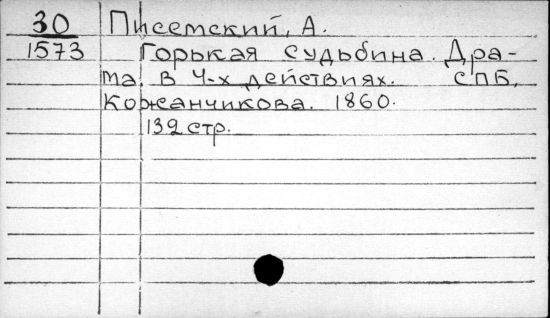 30 Писемский, А.
1573 Горькая судьбина. Дра-
ма в 4-х действиях. СПБ,
Кожанчикова. 1860.
132 стр.